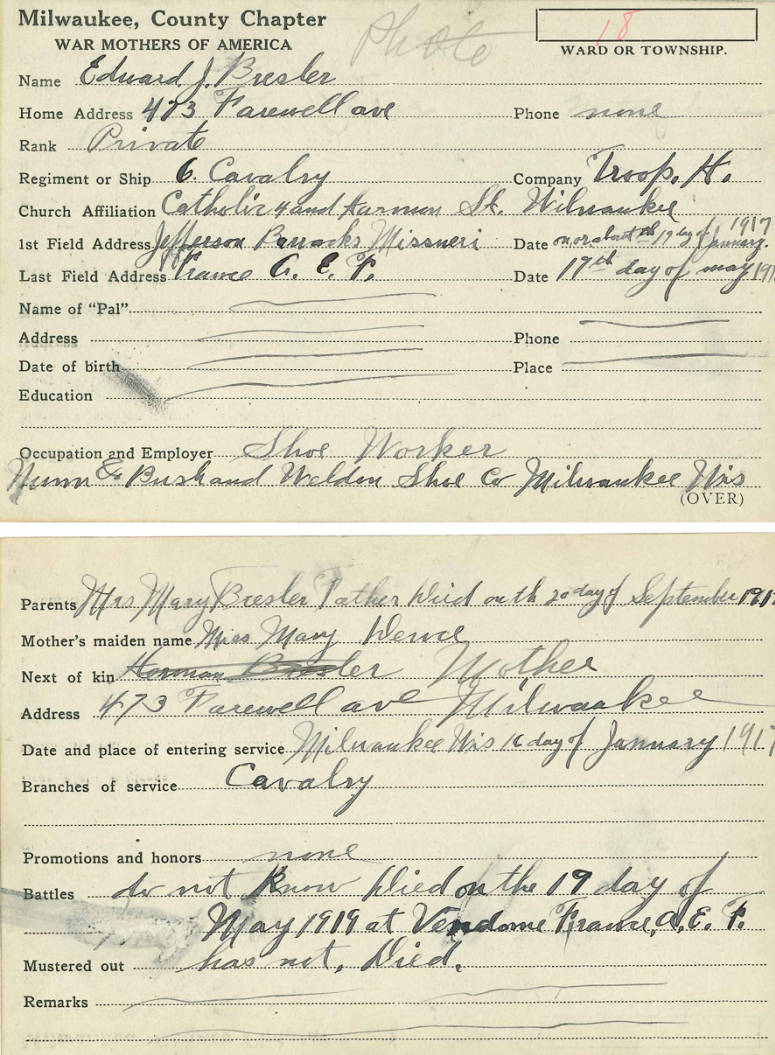 Milwaukee, County Chapter
WAR MOTHERS OF AMERICA
Photo
18
WARD OR TOWNSHIP.
Name Edward J. Bresler
Home Address 473 Farewell ave Phone none
Rank Private
Regiment or Ship 6. Cavalry Company Troop. H.
Church Affiliation Catholic 4 and Harmon St. Wilwaukee
1st Field Address Jefferson Barracks Missueri Date on or about the 17 day of January. 1917
Last Field Address France A. E. F. Date 17th day of may 191
Name of "Pal"
Address Phone
Date of birth Place
Education
Occupation and Employer Shoe Worker
Nunn & Bush and Weldon Shoe Co Milwaukee Wis
(OVER)
Parents Mrs Mary Bresler Father Died on th 20 day of September
Mother's maiden name Miss Mary
Next of kin Herman Bresler Mother
Address 473 Farewell ave Milwaukee
Date and place of entering service Milwaukee Wis 16 day of January 1917
Branches of service Cavalry
Promotions and honors none
Battles do not Know Died on the 19 day of
May 1919 at Vendome France, A. E. F.
Mustered out has not, Died.
Remarks